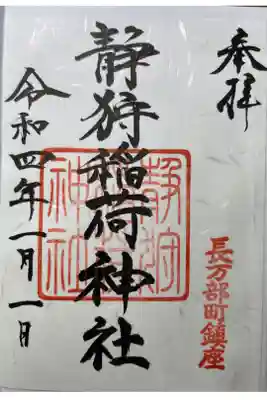 奉拝
長万部町鎮座
静狩稲荷神社
静狩稲荷神社
令和四年一月一日